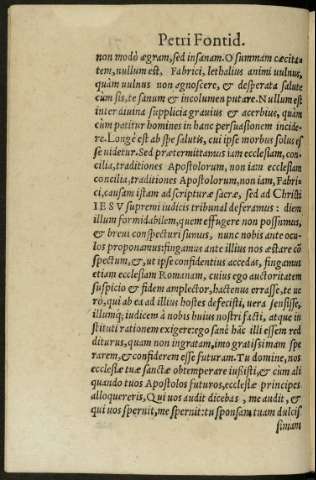 Petri Fontid.
non modò ægram, sed insanam. O summam cæcita
tem, nullum est, Fabrici, lethalius animi uulnus,
quàm uulnus non agnoscere, & desperata salute
cùm sis, te sanum & incolumen putare. Nullum est
inter diuina supplicia grauius & acerbius, quàm
cùm patitur homines in hanc persuasionem incide-
re. Longè est ab spe salutis, cui ipse morbus salus es
se uidetur. Sed prætermittamus iam ecclesiam, con-
cilia, traditiones Apostolorum, non iam ecclesiam
concilia, traditiones Apostolorum, non iam, Fabri-
ci, causam istam ad scripturæ sacræ, sed ad Christi
IESV supremi iudicis tribunal deferamus: diem
illum formidabilem, quem effugere non possumus,
& breui conspecturi sumus, nunc nobis ante ocu-
los proponamus: fingamus ante illius nos æstare cō
spectum, &, ut ipse confidentius accedas, fingamus
etiam ecclesiam Romanam, cuius ego auctoritatem
suspicio & fidem amplector, hactenus errasse, te ue
rò, qui ab ea ad illius hostes defecisti, uera sensisse,
illumq; iudicem à nobis huius nostri facti, atque in
stituti rationem exigere: ego sanè hàc illi essem red
diturus, quam non ingratam, imo gratissimam spe
rarem, & confiderem esse futuram. Tu domine, nos
ecclesiæ tuæ sanctæ obtemperare iussisti, & cùm ali
quando tuos Apostolos futuros, ecclesiæ principes
alloquereris, Qui uos audit dicebas, me audit, &
qui uos spernit, me spernit: tu sponsam tuam dulcis
simam